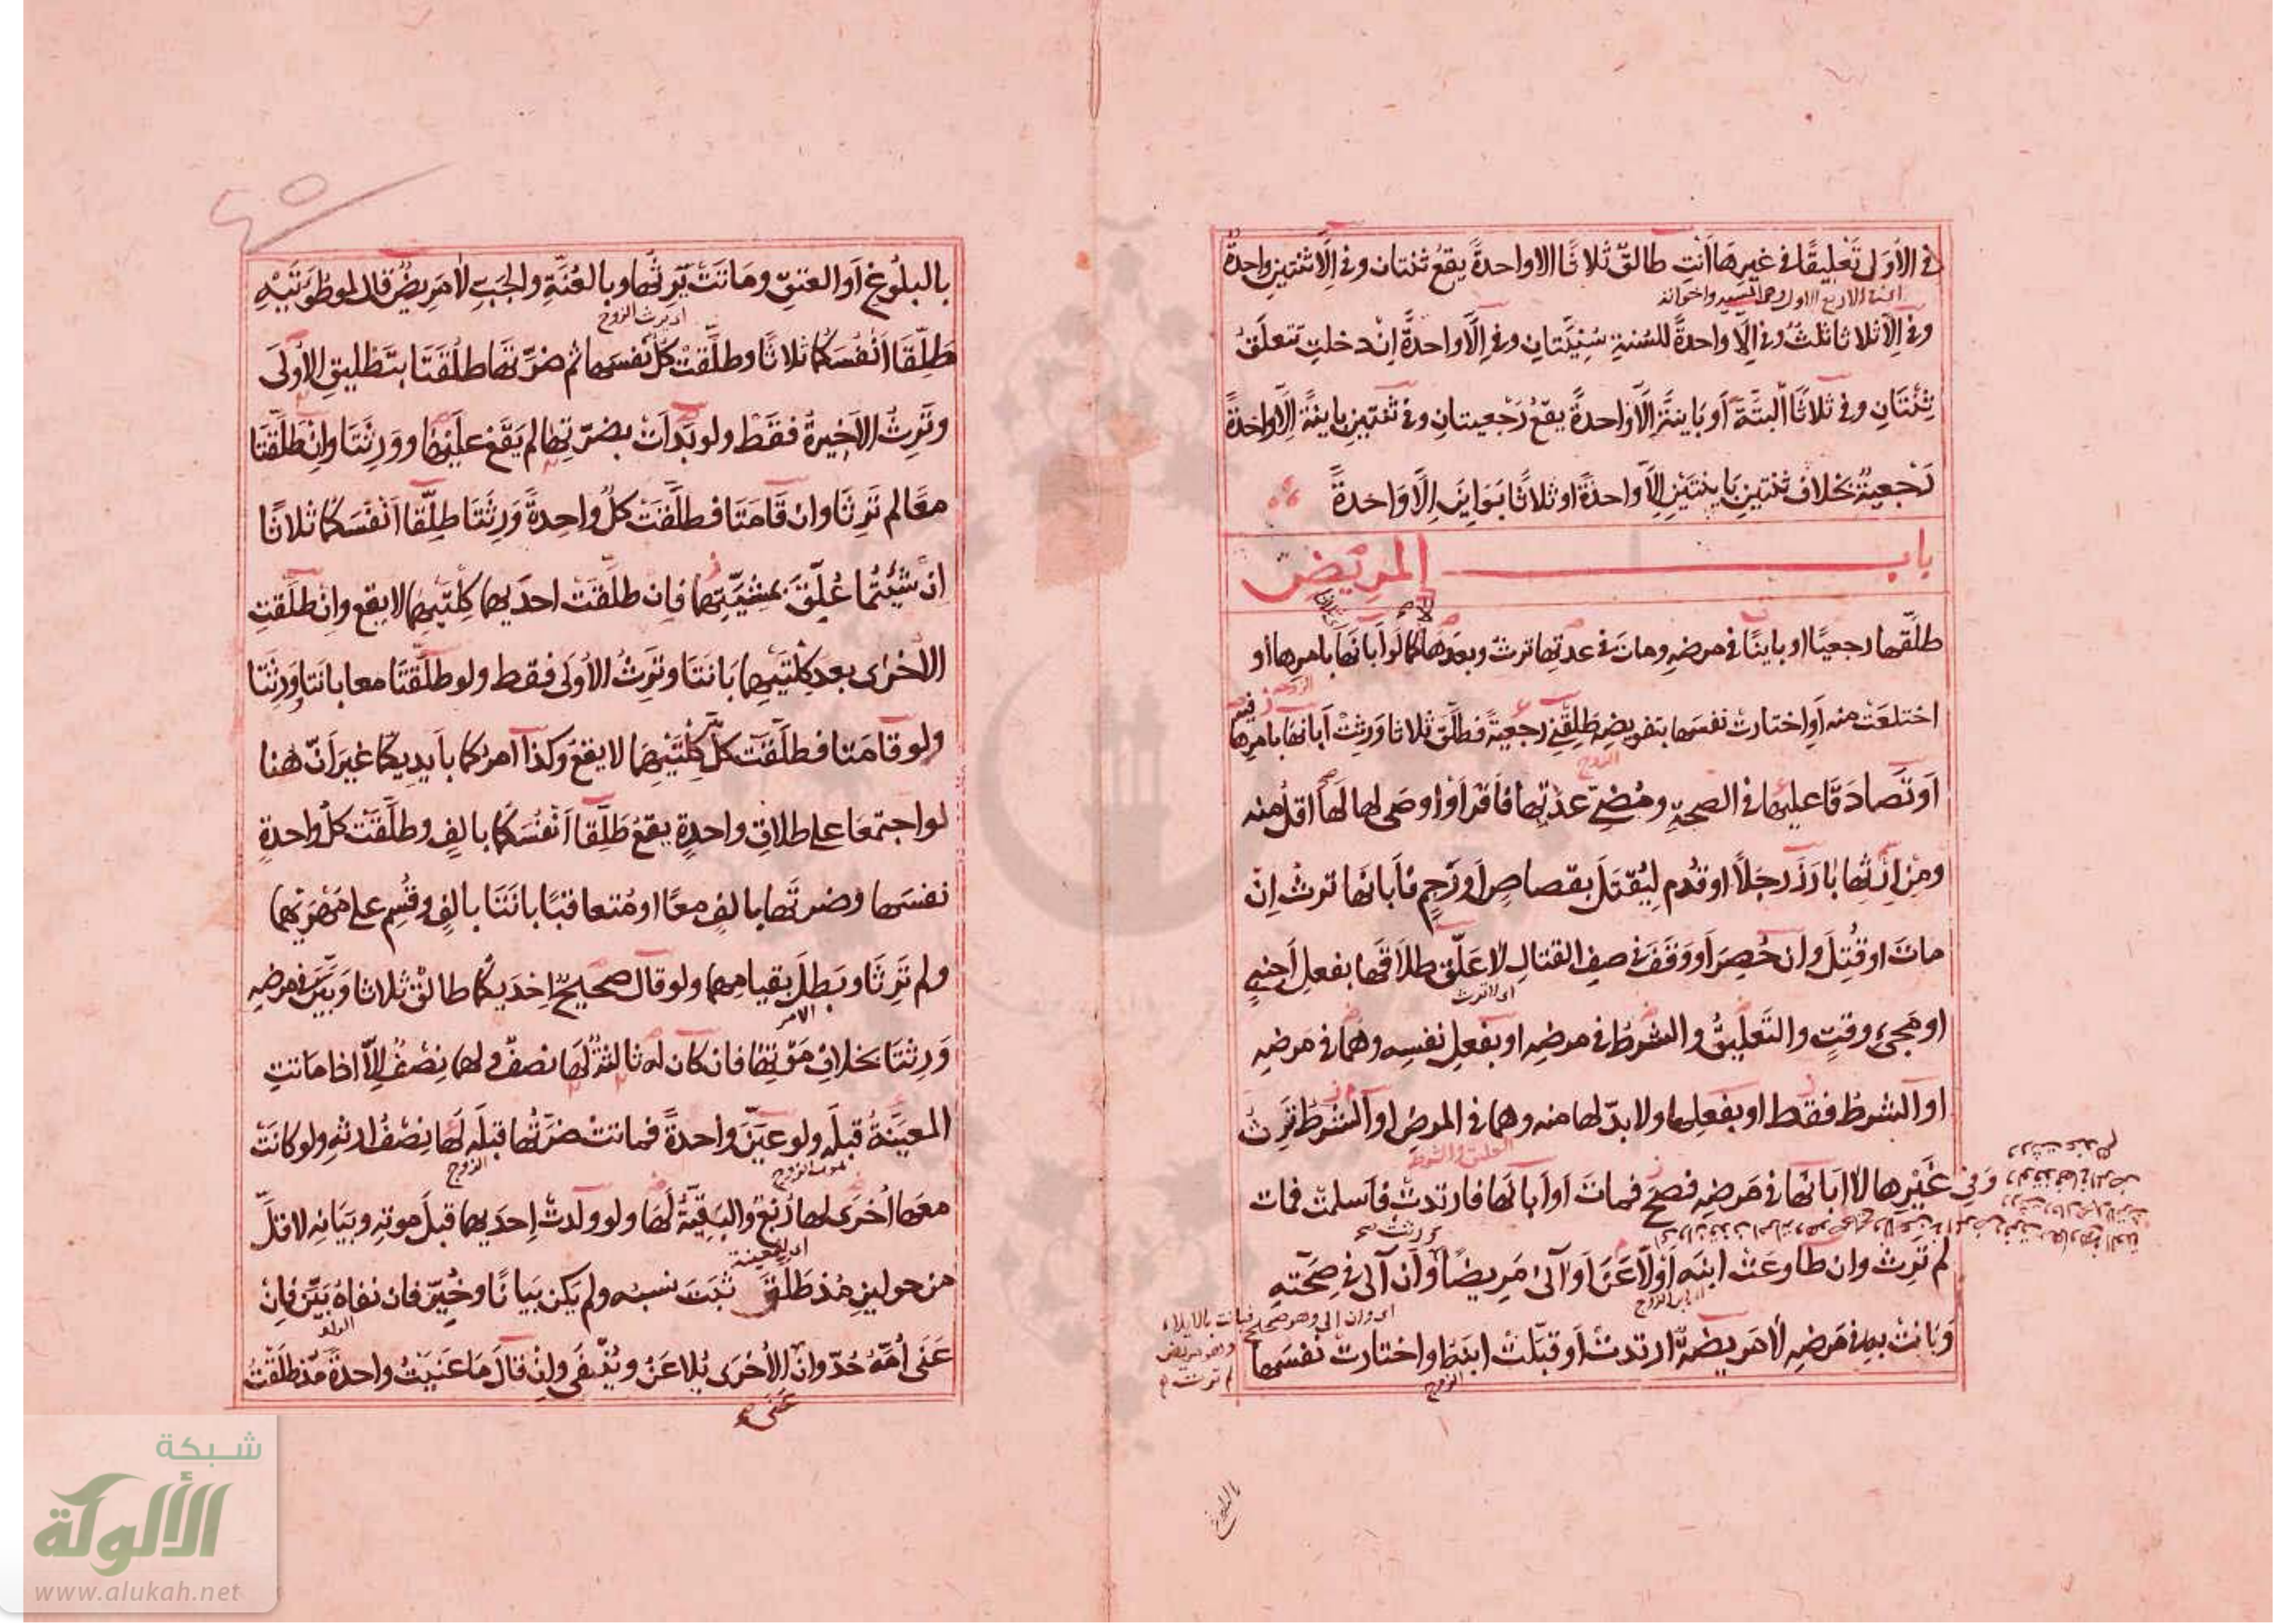 في الأَوَلى تَعْلِيقًا في غيرِهَا أنتِ طالقٌ ثلاثًا الا واحدةً يقعُ ثنتان وفي إلَّا ثنتينِ واحدةٌ
وفي إلّا ثلاثا ثلثٌ وفي إلَّا واحدةً للسُنةِ سُنِّيَّتانِ وفي إلَّا واحدةً إنْ دخلتِ تتعلَّقُ
ثِنْتَانِ وفي ثلاثًا ألبتَّةَ أو بَاينةً إلَّا واحدةً يقعُ رَجْعيتانِ وفي ثنتينِ باينةً إلَّا واحدةً
رَجْعيةٌ بخلاف ثنتينِ باينتَيْنِ إلَّا واحدةً او ثلاثًا بَوَاينَ إلَّا وَاحدةً
باب المريض
طلَّقها رجعيًّا او باينًا في مرضِهِ وماتَ في عدتِها ترثُ وبعدَها لا كما لَو أبانَهَا بامرِها أو
اختلعَتْ منه أوِ اختارتْ نفسَها بتفويضِه طَلِّقْنِي رجعيةً فطلَّقَ ثلاثا وَرِثتْ أبانَها بامرِها
اَو تَصادَقَا عليها في الصحةِ ومُضِيِّ عدتِها فأقرَّ أوْ أوصَى لها لَهَا اقلُّ منه
ومِن إرثِها بَارَزَ رجلًا او قُدِّم لِيُقتَلَ بقصاصٍ أو رَجمٍ فأبانَها ترثُ إنْ
ماتَ او قُتِلَ وإن حُصِرَ أو وَقَفَ في صفِ القتالِ لا عَلَّق طلاقَها بفعلِ أجنبيٍ
او مَجيءِ وقتٍ والتَعليقُ والشرطُ في مرضِه او بفعلِ نفسِه وهُما في مرضِه
اوِ الشرطُ فقط او بفعلِها ولا بدّ لها منه وهما في المرضِ اوِ الشَّرطُ تَرِثُ
وَفي غَيْرِها لا أبَانَها في مَرضِه فصحَّ فماتَ او أبانَها فارتدتْ فأسلمتْ فمات
لم تَرِثْ وان طاوعَتْ ابنَه أو لاعَنَ أو آلى مَريضًا وان آلى في صِحَّتِه
وَبَانتْ به في مَرضِه لا مريضةٌ ارتدتْ أو قبَّلتْ ابنَه او اختارتْ نفسَها
بالبلوغ
بالبلُوغِ أَو العتقِ ومَاتَتْ يَرِثُها وبالعُنَّةِ والجَبِّ لا مَريضٌ قال لموطُوَتَيْهِ
طَلِّقَا أنْفُسَكُما ثلاثًا وطلَّقتْ كلٌّ نفسَها ثم ضرَّتَها طلُقَتَا بتَطليقِ الأولَى
وتَرِثُ الأخيرةُ فقَط ولو بَدأَتْ بضرّتِها لم يَقَعْ عليها ووَرِثَتَا وإنْ طلَّقتَا
معًا لم تَرِثَا وان قَامَتَا فطلَّقتْ كلُّ واحِدةٍ وَرِثَتَا طلِّقا أنفسَكما ثلاثًا
إنْ شئتُما عُلِّقَ بمَشيَّتِهما فإن طلَّقتْ احدَيهما كِلتَيْهِما لا يقع وان طلَّقتِ
الأخرَى بعد كِلْتَيْهِما بَانَتَا وتَرِثُ الأولَى فقط ولو طلَّقتَا معا بانَتا ووَرِثَتَا
ولو قامَتا فطلّقتْ كلٌّ كِلْتَيْهِمَا لا يقعُ وكذا أمرُكما بأيدِيكُما غيرَ أنّ هُنا
لو اجتَمعَا على طلاقِ واحدةٍ يقعُ طَلِّقا أنفُسَكُما بالفٍ وطلَّقَتْ كلُّ واحدةٍ
نفسَها وضرتَها بالفٍ معًا او مُتعاقبًا بانَتَا بالفٍ وقُسِم على مَهرَيهما
ولم تَرِثَا وبَطلَ بقيامِهما ولو قالَ صحيحٌ إحدَيكُما طالقٌ ثلاثا وَبَيَّن في مرضِه
وَرِثتَا بخلافِ مَوْتِهَا فان كان له ثالثةٌ لَها نصفٌ ولهما نِصْفُ إلَّا اذا ماتتِ
المعيَّنةُ قبلَه ولو عيَّنَ واحدةً فماتتْ ضَرَّتُها قبلَه لَها نِصْفُ ارثهِ ولو كانَتْ
معَها أُخرَى لها رُبُعٌ والبَقِيّةُ لَها ولو ولدتْ إحدَيهما قبلَ موتِه وبَيَانِه لاقلَّ
من حولينِ مُذ طَلّقَ ثبَتَ نسبُه ولم يكن بَيانًا وخُيِّرَ فان نفاهُ بَيَّن فإنْ
عَنَى أمَّهُ حُدّ وانِ الأخرَى يُلاعَنُ ويُنْفَى وإنْ قالَ مَا عَنَيْتُ واحدةً مُذ طلَّقْتُ
عَنَى
شبكة
الألوكة
www.alukah.net